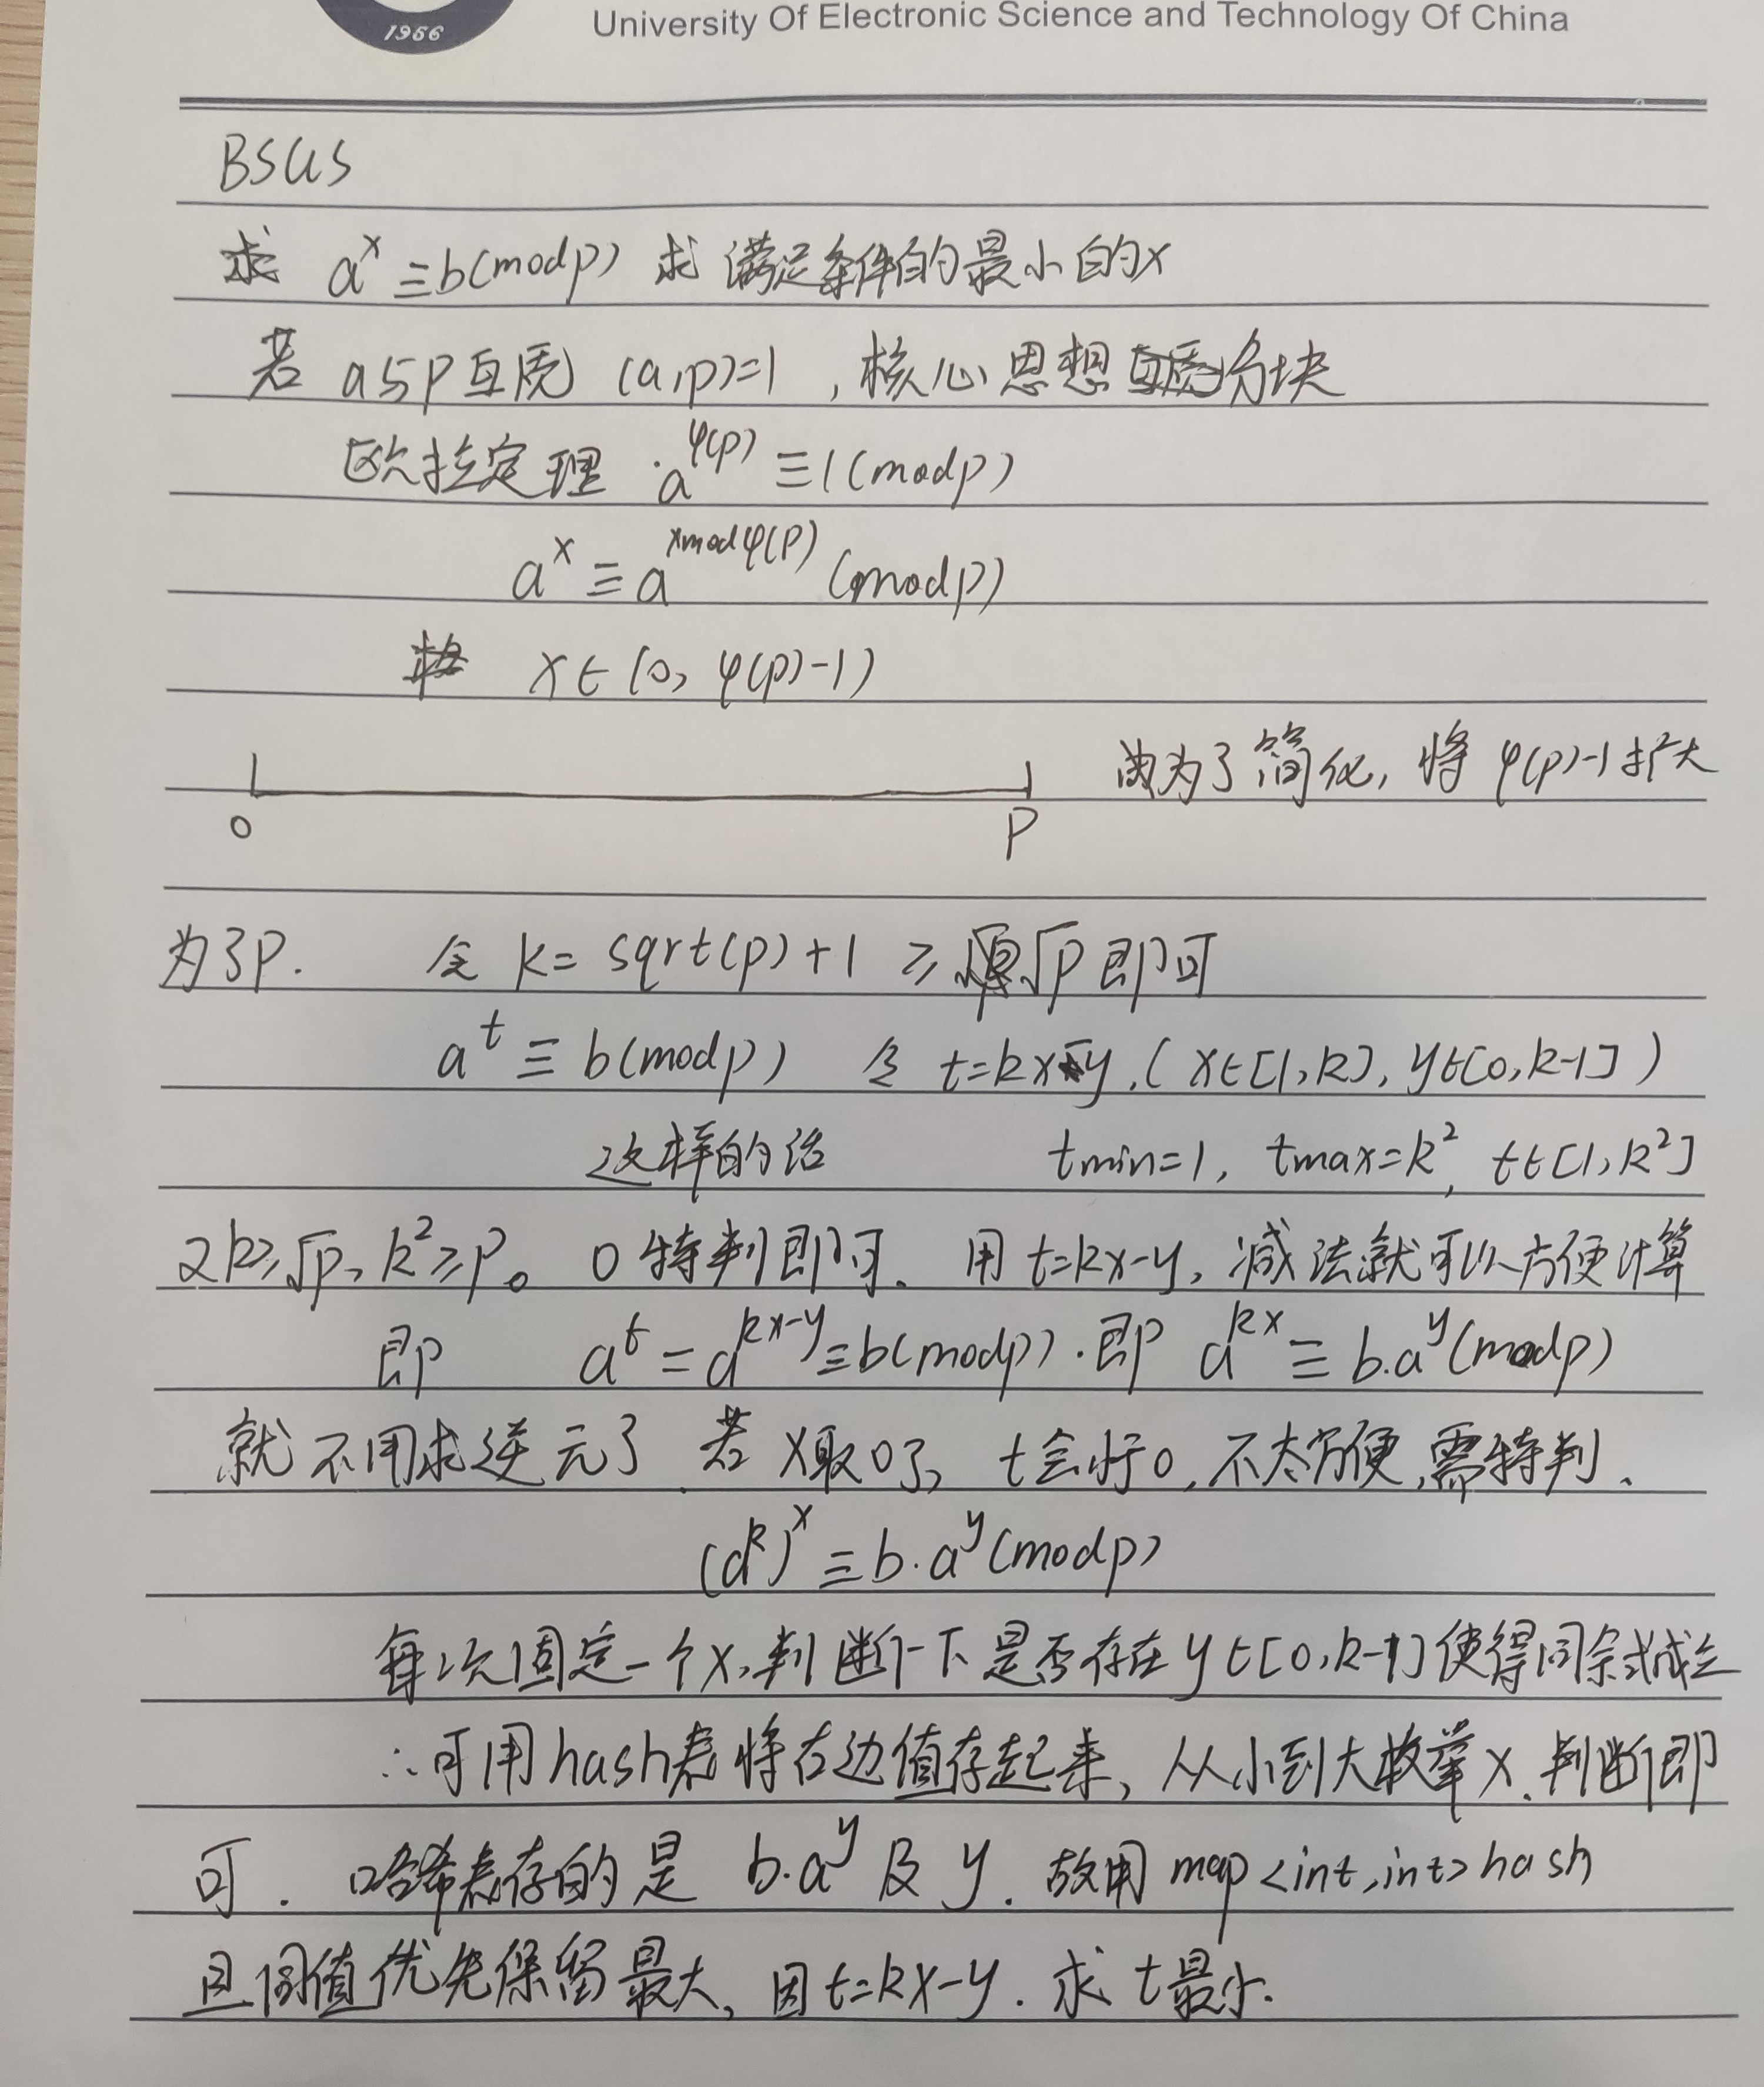 1956
University Of Electronic Science and Technology Of China
BSGS
求 a^x ≡ b(mod p) 求满足条件的最小的x
若 a与p互质 (a,p)=1 , 核心思想 分块
欧拉定理 . a^φ(p) ≡ 1 (mod p)
a^x ≡ a^(x mod φ(p)) (mod p)
x ∈ (0, φ(p)-1)
为了简化, 将 φ(p)-1 扩大
0 P
为了P. 令 k = sqrt(p) + 1 ≥ √p 即可
a^t ≡ b(mod p) 令 t=kx-y, ( x∈[1,k], y∈[0,k-1] )
这样的话 tmin=1, tmax=k², t∈[1,k²]
又k≥√p, k²≥p。 0特判即可. 用 t=kx-y, 减法就可以方便计算
即 a^t = a^(kx-y) ≡ b(mod p) . 即 a^(kx) ≡ b.a^y (mod p)
就不用求逆元了. 若 x取0了, t会小于0, 不太方便, 需特判.
(a^k)^x ≡ b.a^y (mod p)
每次固定一个x, 判断一下是否存在 y∈[0,k-1] 使得同余式成立
∴可用hash表将右边值存起来, 从小到大枚举 x. 判断即
可. 哈希表存的是 b.a^y 及 y. 故用 map<int,int> hash
且同值优先保留最大, 因t=kx-y. 求 t最小.